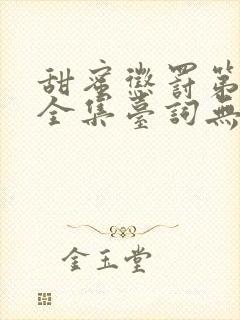 甜蜜懲罰第
全集臺詞無
金玉堂